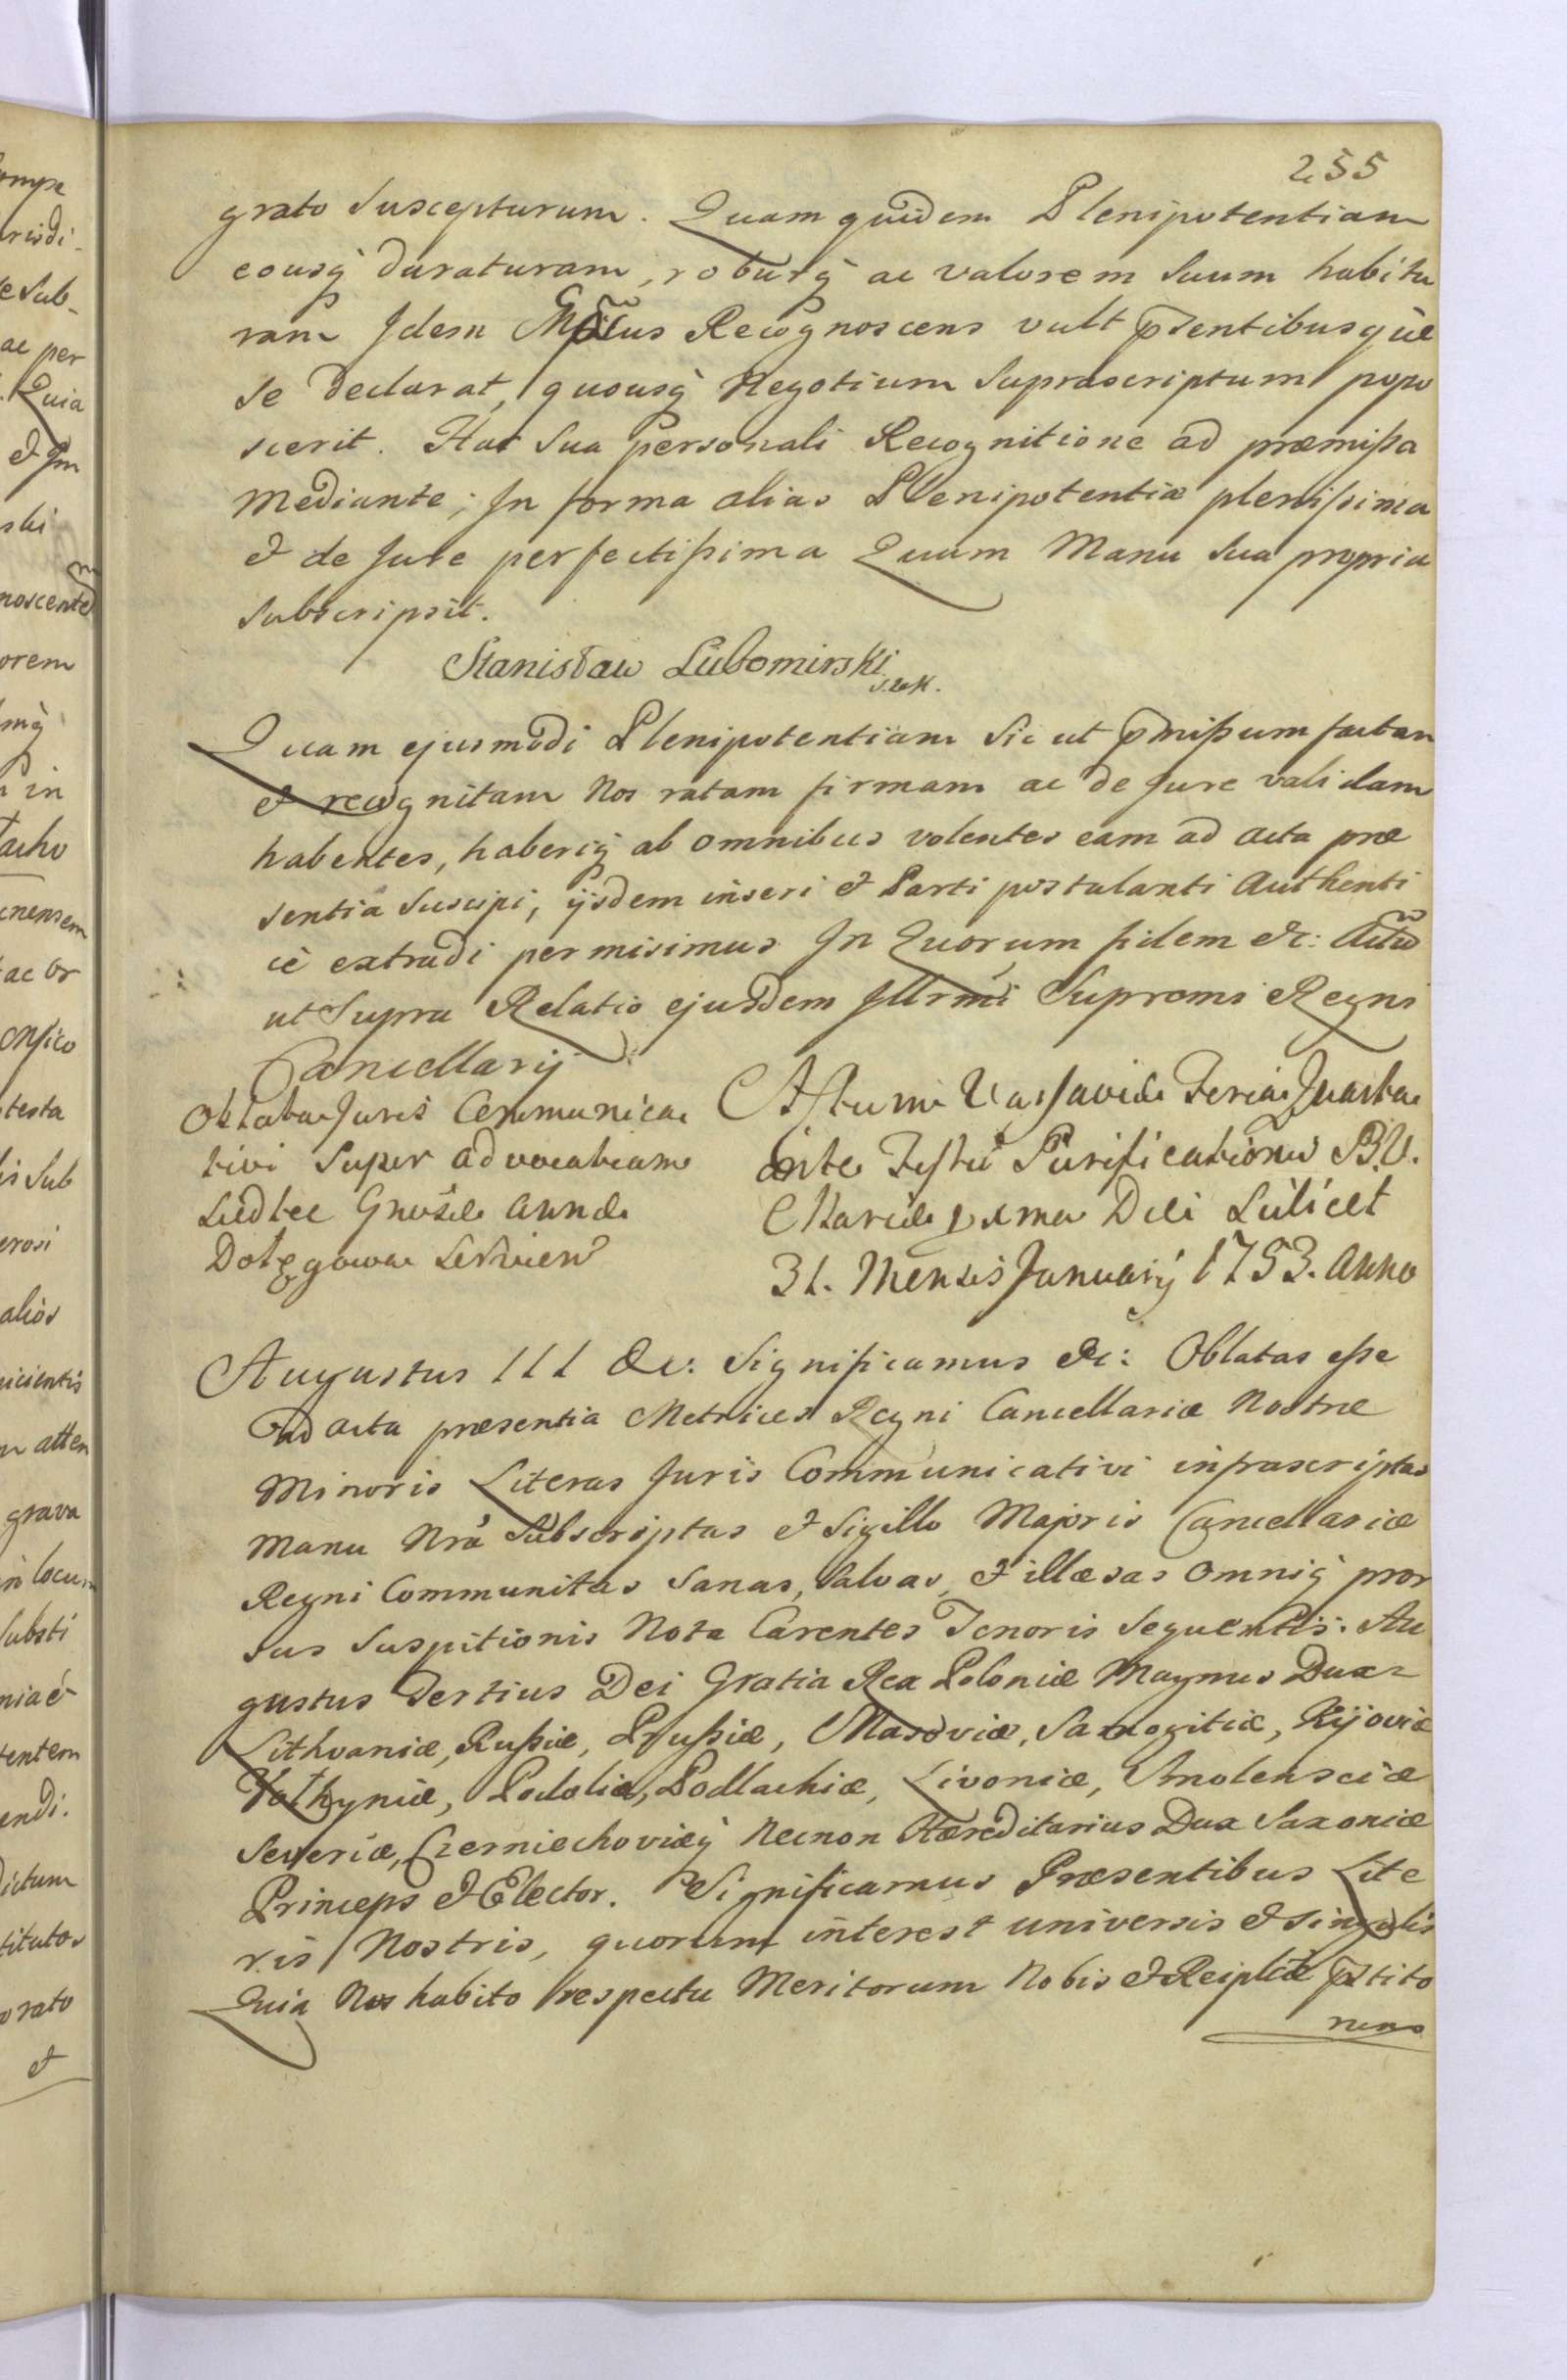 255
grato Suscepturum. Quam quidem Plenipotentiam
eousq̀ duraturam, roburq̀ ac valorem Suum habitu
ram Idem Recognoscens vult p̃sentibusquè
se declarat, quousq̀ Negotium Suprascriptum popo
scerit. Hac Sua personali Recognitione ad præmißa
mediante; In forma alias Plenipotentiæ plenißima
et de Jure perfectißima Quam Manu Sua propria
Subscripsit.
Stanisław Lubomirski
Quam ejusmodi Plenipotentiam Sic ut p̃mißum factam
et recognitam Nos ratam firmam ac de Jure validam
habentes, haberiq̀ ab omnibus volentes eam ad acta præ
sentia Suscipi, ijsdem inseri et Parti postulanti Authenti
cè extradi permisimus In Quorum fidem &c: Actũ
ut Supra Relatio ejusdem Illrmi Supremi Regni
Cancellarij
Oblata Juris Communica
tivi Super advocatiam
Siedlee Gnosæ Annæ
Dołęgowa Servien̉
Actum Varsaviæ Feria Quarta
ante Festũ Purificationis B.V.
Mariæ Dei Scilicet
31. Mensis Januarij 1753. Anno
Augustus III &c: Significamus &c: Oblatas eße
ad acta præsentia Metrices Regni Cancellariæ Nostræ
Minoris Literas Juris Communicativi infrascriptas
manu Nrâ Subscriptas et Sigillo Majoris Cancellariæ
Regni Communitas Sanas, Salvas, et illæsas omniq̀ pror
sus Suspitionis Nota Carentes Tenoris Sequentis: Au
gustus Tertius Dei Gratia Rex Poloniæ Magnus Dux
Lithvaniæ, Rußiæ, Prußiæ, Masoviæ, Samogitiæ, Kijoviæ
Volhyniæ, Podoliæ, Podlachiæ, Livoniæ, Smolensciæ
Severiæ, Czerniechoviæq̀ Necnon Hæreditarius Dux Saxoniæ
Princeps et Elector. Significamus Præsentibus Lite
ris Nostris, quorum interest universis et singulis
Quia Nos habito respectu Meritorum Nobis et Reiplicæ p̃stito
rum